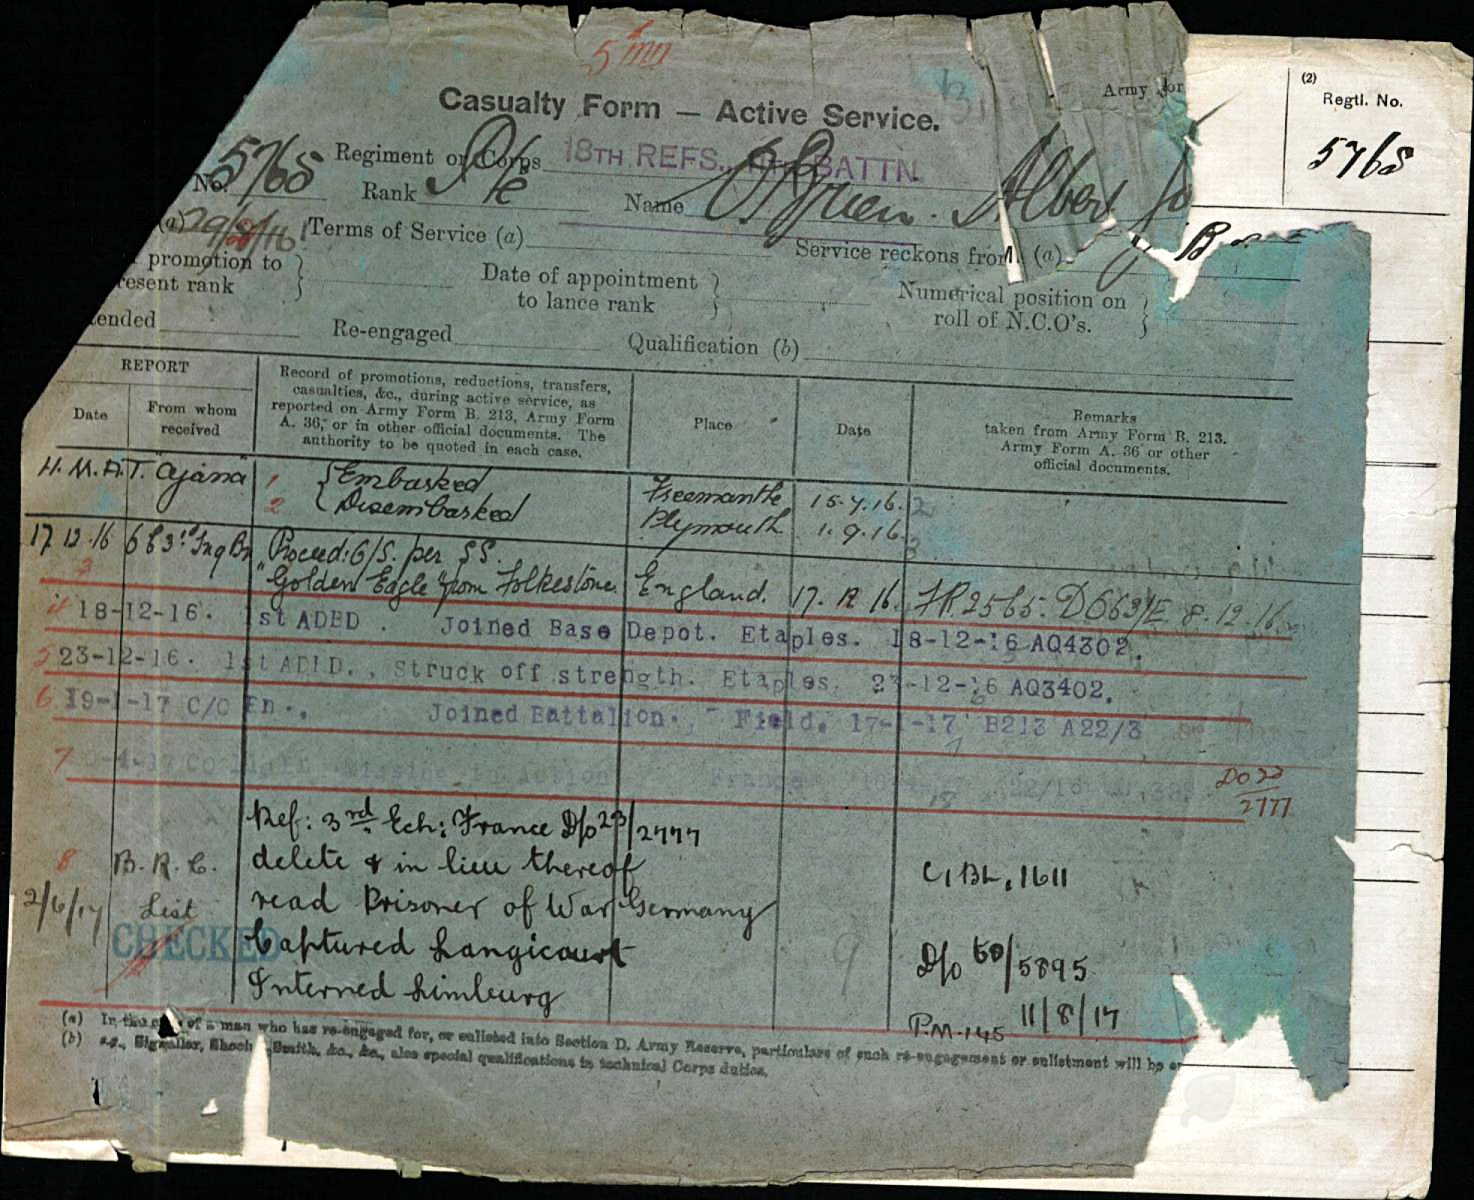 5
Casualty Form — Active Service.
Army For
(2)
Regtl. No.
5768
No. 5768 Regiment or Corps 18TH REFS., BATTN.
Rank Pte Name O'Brien. Albert Jo
(a) 29/ /16 Terms of Service (a) Service reckons from (a)
promotion to
resent rank
Date of appointment
to lance rank
Numerical position on
roll of N.C.O's.
ended Re-engaged Qualification (b)
REPORT
Date
From whom
received
Record of promotions, reductions, transfers,
casualties, &c., during active service, as
reported on Army Form B. 213, Army Form
A. 36, or in other official documents. The
authority to be quoted in each case.
Place
Date
Remarks
taken from Army Form B. 213.
Army Form A. 36 or other
official documents.
H.M.A.T. Ajana 1 Embarked Freemantle 15.7.16.
2 Disembarked Plymouth 1.9.16.
17 12 16 Proceed: O/S. per SS.
3 "Golden Eagle" from Folkestone. England. 17. 12 16.
4 18-12-16. 1st ADBD. Joined Base Depot. Etaples. 18-12-16 AQ4302.
5 23-12-16. 1st ADBD., Struck off strength. Etaples. 23-12-16 AQ3402.
6 19-1-17 C/O Bn., Joined Battalion., Field. 17-1-17 B213 A22/3
7 CO Missing in Action France DO 22
2777
Ref: 3rd Ech: France D/o 23/2777
8 B.R.C. delete & in lieu thereof C, BL, 1611
2/6/17 List read Prisoner of War Germany
CHECKED Captured Langicourt 9 D/o 60/5895
Interned Limburg 11/8/17
P.M.145
(a) In the case of a man who has re-engaged for, or enlisted into Section D. Army Reserve, particulars of such re-engagement or enlistment will be
(b) e.g., Signaller, Shoeing Smith, &c., &c., also special qualifications in technical Corps duties.